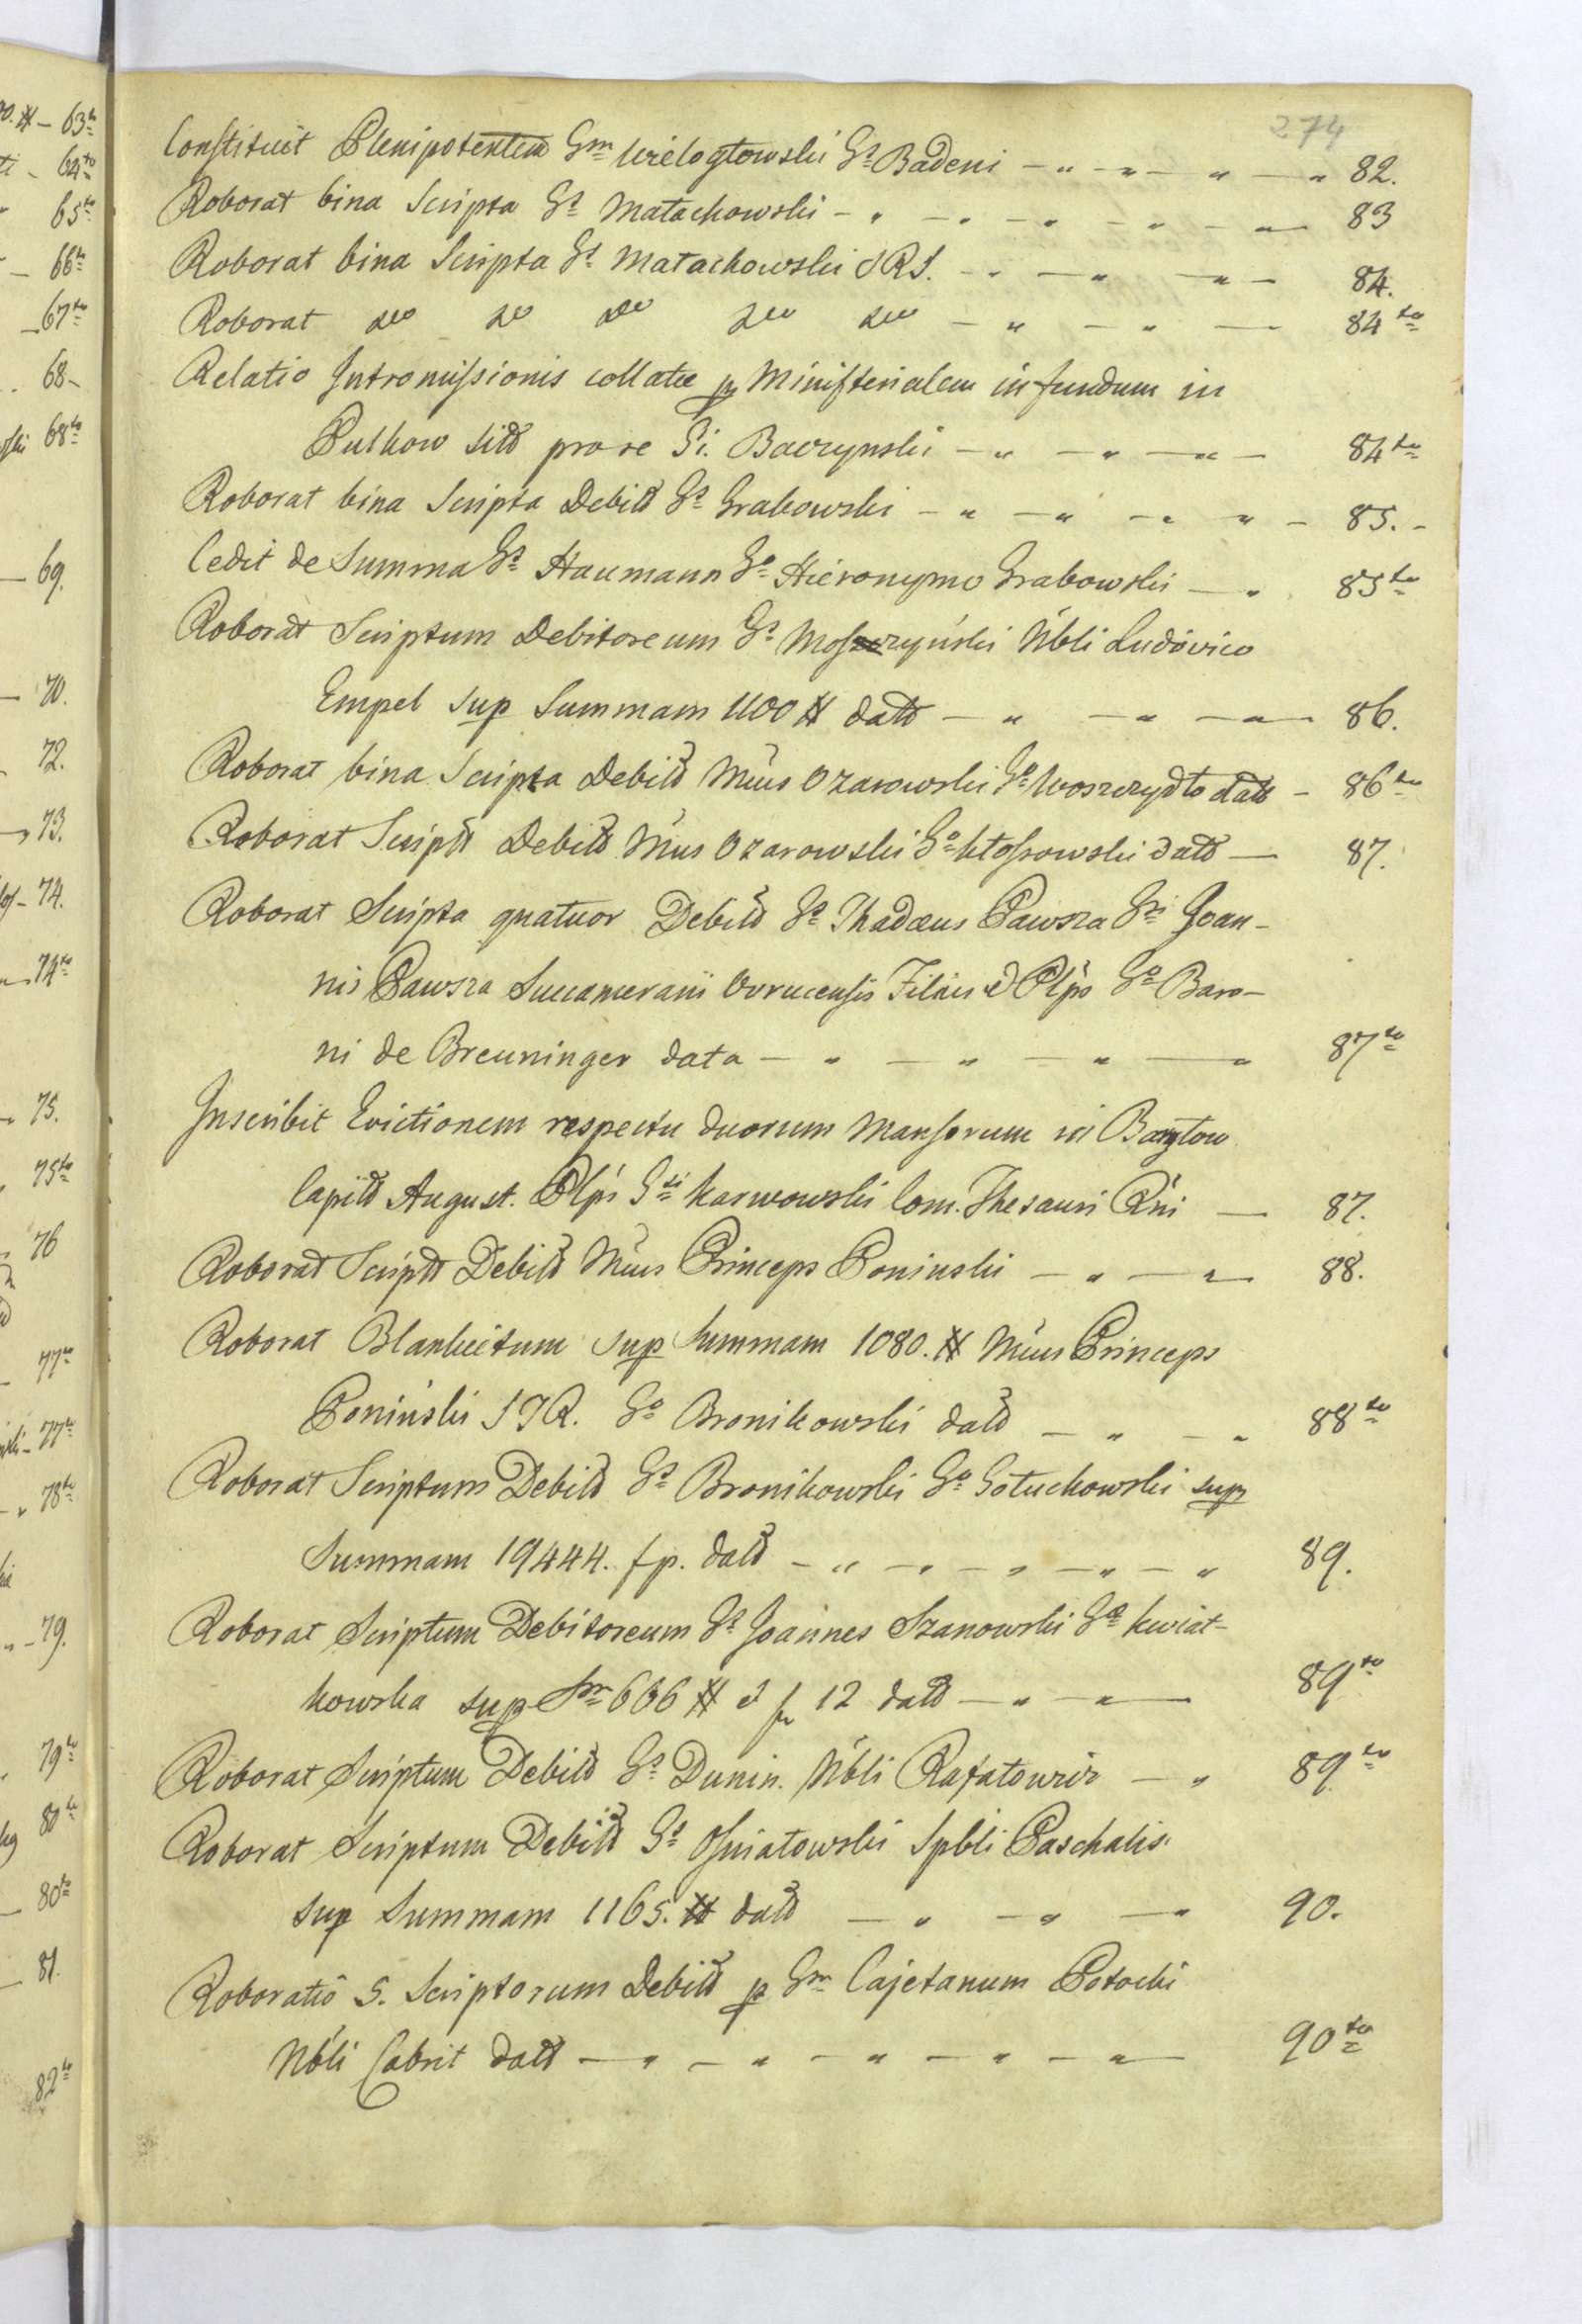 274
Constituit Plenipotentem Gm Wielogłowski Gs Badeni — " — " — " — " 82.
Roborat bina Scripta Gs Małachowski — " — " — " — " — " — 83
Roborat bina Scripta Gs Małachowski SRS. — " — " — " — 84.
Roborat dto dto dto dto dto — " — " — 84to
Relatio Intromissionis collatae p Ministerialem in fundum in
Pulkow sitd pro re Gi. Baczynski — " — " — " — 84to
Roborat bina Scripta Debitd Gs Grabowski — " — " — " — " — 85. -
Cedit de Summa Gs Haumann Go Hieronymo Grabowski — " 85to
Roborat Scriptum Debitoreum Gs Moszczyński Nbli Ludovico
Empel sup Summam 1100 # datd — " — " — " — 86.
Roborat bina Scripta Debitd Mcus Ozarowski Go Woszczydło datd — 86to
Roborat Scriptd Debitd Mcus Ozarowski Go Kłossowski datd — 87.
Roborat Scripta quatuor Debitd Gs Thadaeus Pawsza Gsi Joan-
nis Pawsza Succamerarii Ovrucensis Filius d Plps Go Baro-
ni de Breuninger data — " — " — " — " 87to
Inscribit Evictionem respectu duorum Mansorum in
Capitd August. Plps Gsi Karwowski Com. Thesauri Rni — 87.
Roborat Scriptd Debitd Mcus Princeps Poninski — " — " — 88.
Roborat Blankietum sup Summam 1080. # Mcus Princeps
Poniński STR. Go Bronikowski datd — " — " 88to
Roborat Scriptum Debitd Gs Bronikowski Go Gołuchowski sup
Summam 19444. fp. datd — " — " — " — " — " 89.
Roborat Scriptum Debitoreum Gs Joannes Szanowski Gae Kwiat-
kowska sup Sm 666 # d f 12 datd — " — " — 89to
Roborat Scriptum Debitd Gs Dunin. Nbli Rafałowicz — " 89to
Roborat Scriptum Debitd Gs Ośniatowski Spbli Paschalis
sup Summam 1165. # datd — " — " — " 90.
Roboratio 5. Scriptorum Debitd p Gm Cajetanum Potocki
Nbli Cabrit datd — " — " — " — " — " — 90to